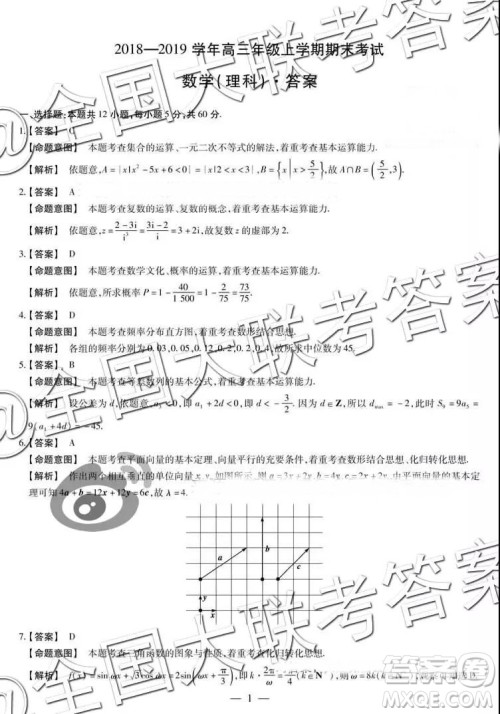 2018—2019 学年高三年级上学期期末考试
数学(理科)·答案
一、选择题:本题共 12 小题,每小题 5 分,共 60 分.
1.【答案】 C
【命题意图】 本题考查集合的运算、一元二次不等式的解法,着重考查基本运算能力.
【解析】 依题意,A={x|x²-5x+6<0}={x|2<x<3},B={x|x>5/2},故A∩B=(5/2,3).
2.【答案】 A
【命题意图】 本题考查复数的运算、复数的概念,着重考查基本运算能力.
【解析】 依题意,z=(2-3i)/i³=(3i-2)/i=3+2i,故复数 z 的虚部为 2.
3.【答案】 D
【命题意图】 本题考查数学文化、概率的运算,着重考查基本运算能力.
【解析】 依题意,所求概率 P=1-40/1 500=1-2/75=73/75.
4.【答案】 D
【命题意图】 本题考查频率分布直方图,着重考查数形结合思想.
【解析】 各组的频率分别为 0.03,0.05,0.12,0.2,0.2,0.4,故所求中位数为 45.
5.【答案】 B
【命题意图】 本题考查等差数列的基本公式,着重考查基本运算能力.
【解析】 设公差为 d,依题意,a₁=2,即 a₁+2d<0,即 d<-3/2. 因为 d∈Z,所以 d max=-2,此时 S₉=9a₅=
9(a₁+4d)=-45.
6.【答案】 A
【命题意图】 本题考查平面向量的基本定理、向量平行的充要条件,着重考查数形结合思想、化归转化思想.
【解析】 作出两个相互垂直的单位向量 x,y,如图所示,则 a=3x+2y,b=4y,c=2x+2y. 由平面向量的基本定
理可知 4a+b=12x+12y=6c,故 λ=4.
b
a
c
y
x
7.【答案】 D
【命题意图】 本题考查三角函数的图象与性质,着重考查化归转化思想.
— 1 —
@全国大联考答案
答案圈
MXQE.COM